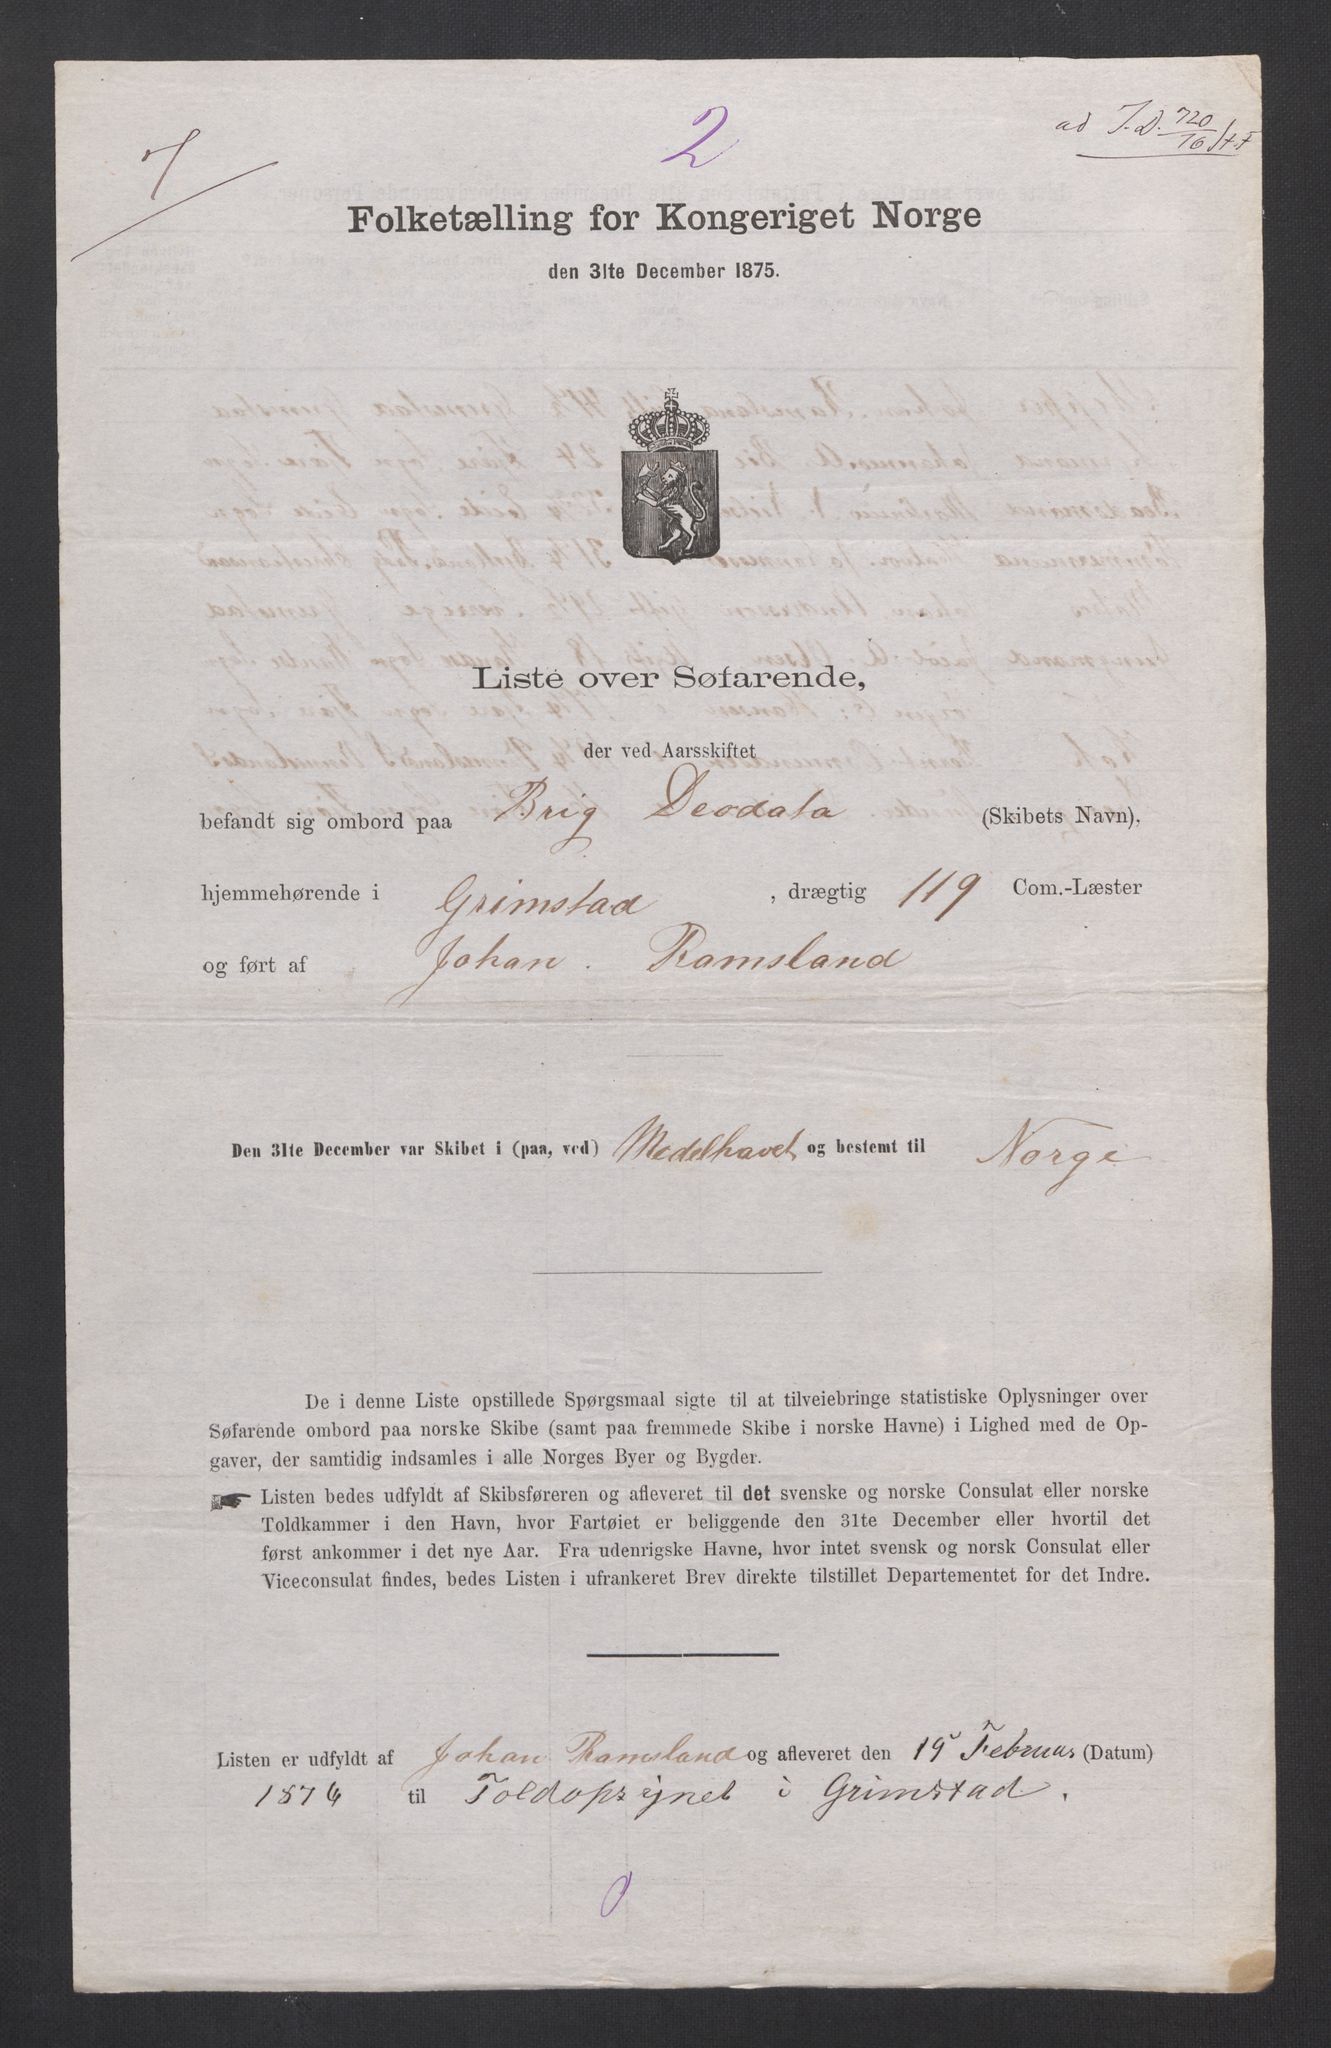 2
ad J.D. 720/76
Folketælling for Kongeriget Norge
den 31te December 1875.
Liste over Søfarende,
der ved Aarsskiftet
befandt sig ombord paa Brig Deodata (Skibets Navn),
hjemmehørende i Grimstad, drægtig 119 Com.-Læster
og ført af Johan. Ramsland
Den 31te December var Skibet i (paa, ved) Medelhavet og bestemt til Norge
De i denne Liste opstillede Spørgsmaal sigte til at tilveiebringe statistiske Oplysninger over
Søfarende ombord paa norske Skibe (samt paa fremmede Skibe i norske Havne) i Lighed med de Op-
gaver, der samtidig indsamles i alle Norges Byer og Bygder.
Listen bedes udfyldt af Skibsføreren og afleveret til det svenske og norske Consulat eller norske
Toldkammer i den Havn, hvor Fartøiet er beliggende den 31te December eller hvortil det
først ankommer i det nye Aar. Fra udenrigske Havne, hvor intet svensk og norsk Consulat eller
Viceconsulat findes, bedes Listen i ufrankeret Brev direkte tilstillet Departementet for det Indre.
Listen er udfyldt af Johan Ramsland og afleveret den 19 Februar (Datum)
1876 til Toldopsynet i Grimstad.